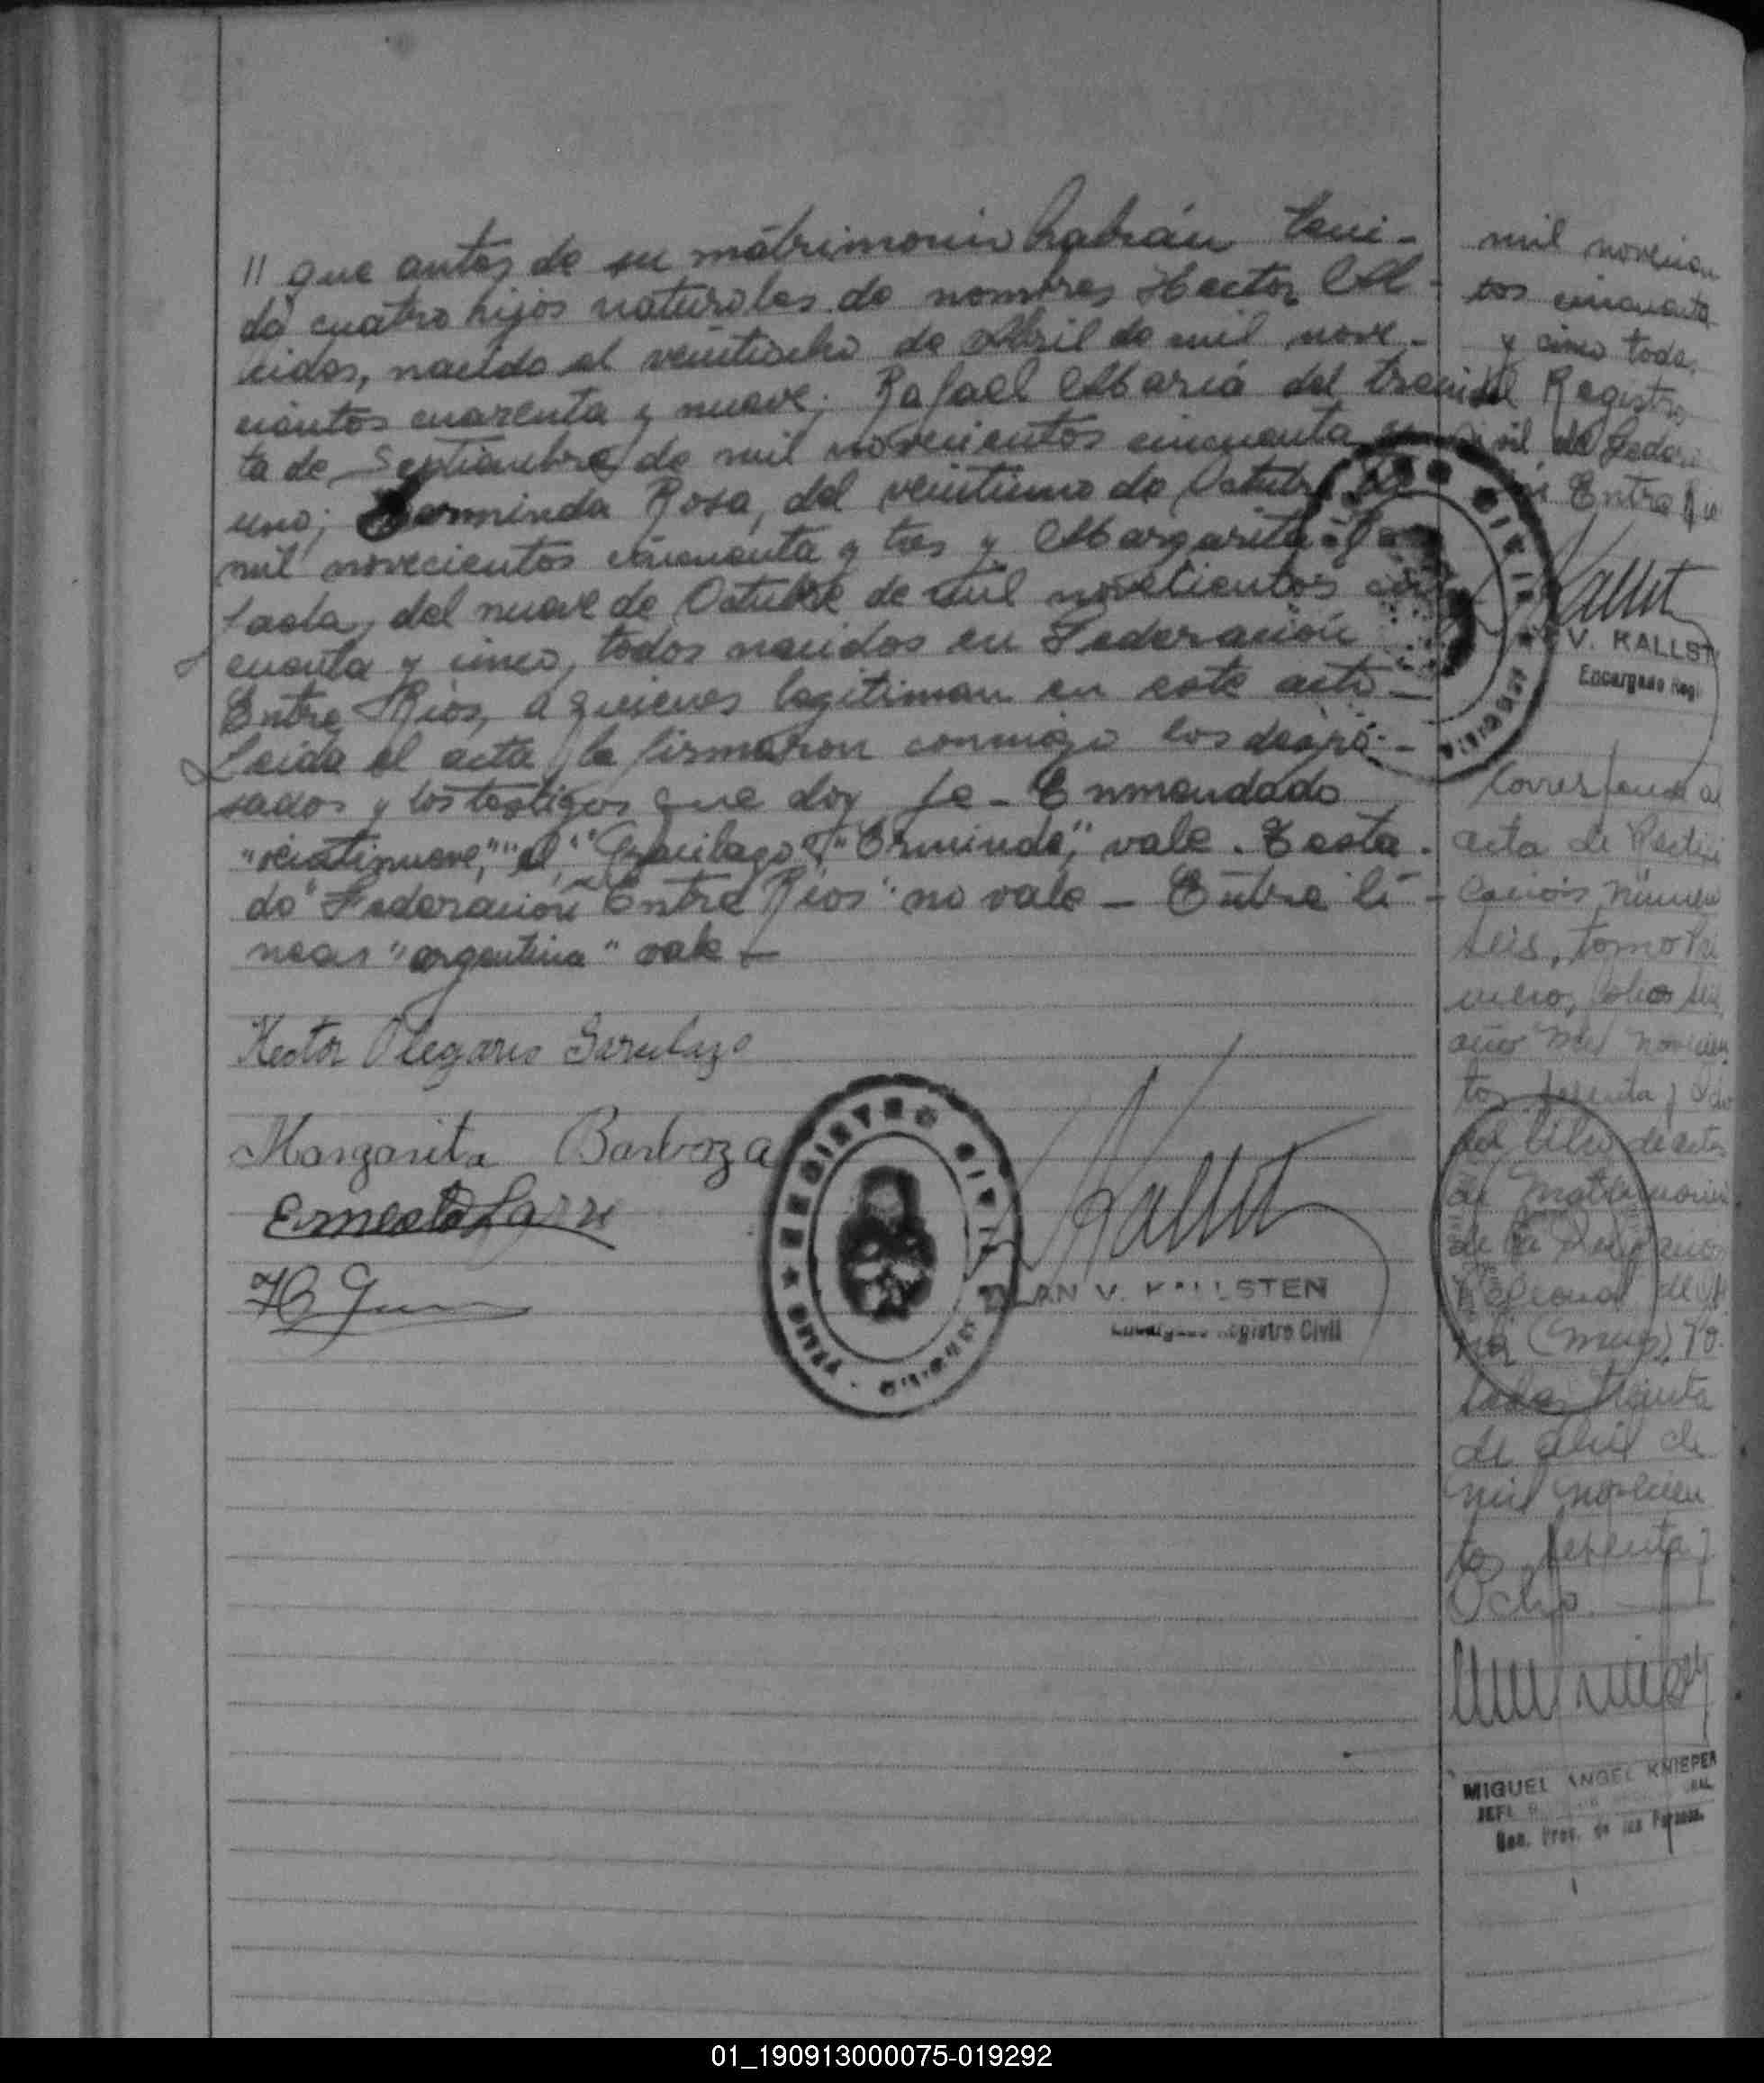 " que antes de su matrimonio habián teni-
do cuatro hijos naturales de nombres Hector Al-
cides, nacido el veintiocho de Abril de mil nove-
cientos cuarenta y nueve; Rafael Maria del trein
ta de Septiembre de mil novecientos cincuenta y
uno; Erminda Rosa, del veintiuno de Octubre de
mil novecientos cincuenta y tres y Margarita
del nueve de Octubre de mil novecientos cin
cuenta y cinco, todos nacidos en Federación
Entre Rios, a quienes legitiman en este acto-
Leida el acta la firmaron conmigo los despo-
sados y los testigos que doy fe - Enmendado
"veintinueve," "el," "Garcilazo" "Erminda," vale. Testa-
do "Federación Entre Rios" no vale - Entre li-
neas "argentina" vale -
Hector Olegario Garcilazo
Margarita Barboza
Ernesto
REGISTRO CIVIL
V. KALLSTEN
Encargado Registro Civil
mil novecien
tos cincuenta
y cinco todo.
del Registro
Civil de Federa
Entre Rio
REGISTRO CIVIL
V. KALLST
Encargado Regi
Corresponde al
acta de Rectifi
cación número
seis, tomo Pri
mero, folio seis
año mil novecien
tos setenta y Ocho
del libro de actas
de Matrimonio
de la
Regional de
Po-
sadas Treinta
de abril de
mil novecien
tos setenta y
Ocho.
MIGUEL ANGEL KNIEPER
JEFE
Prov. de las Personas
01_190913000075-019292